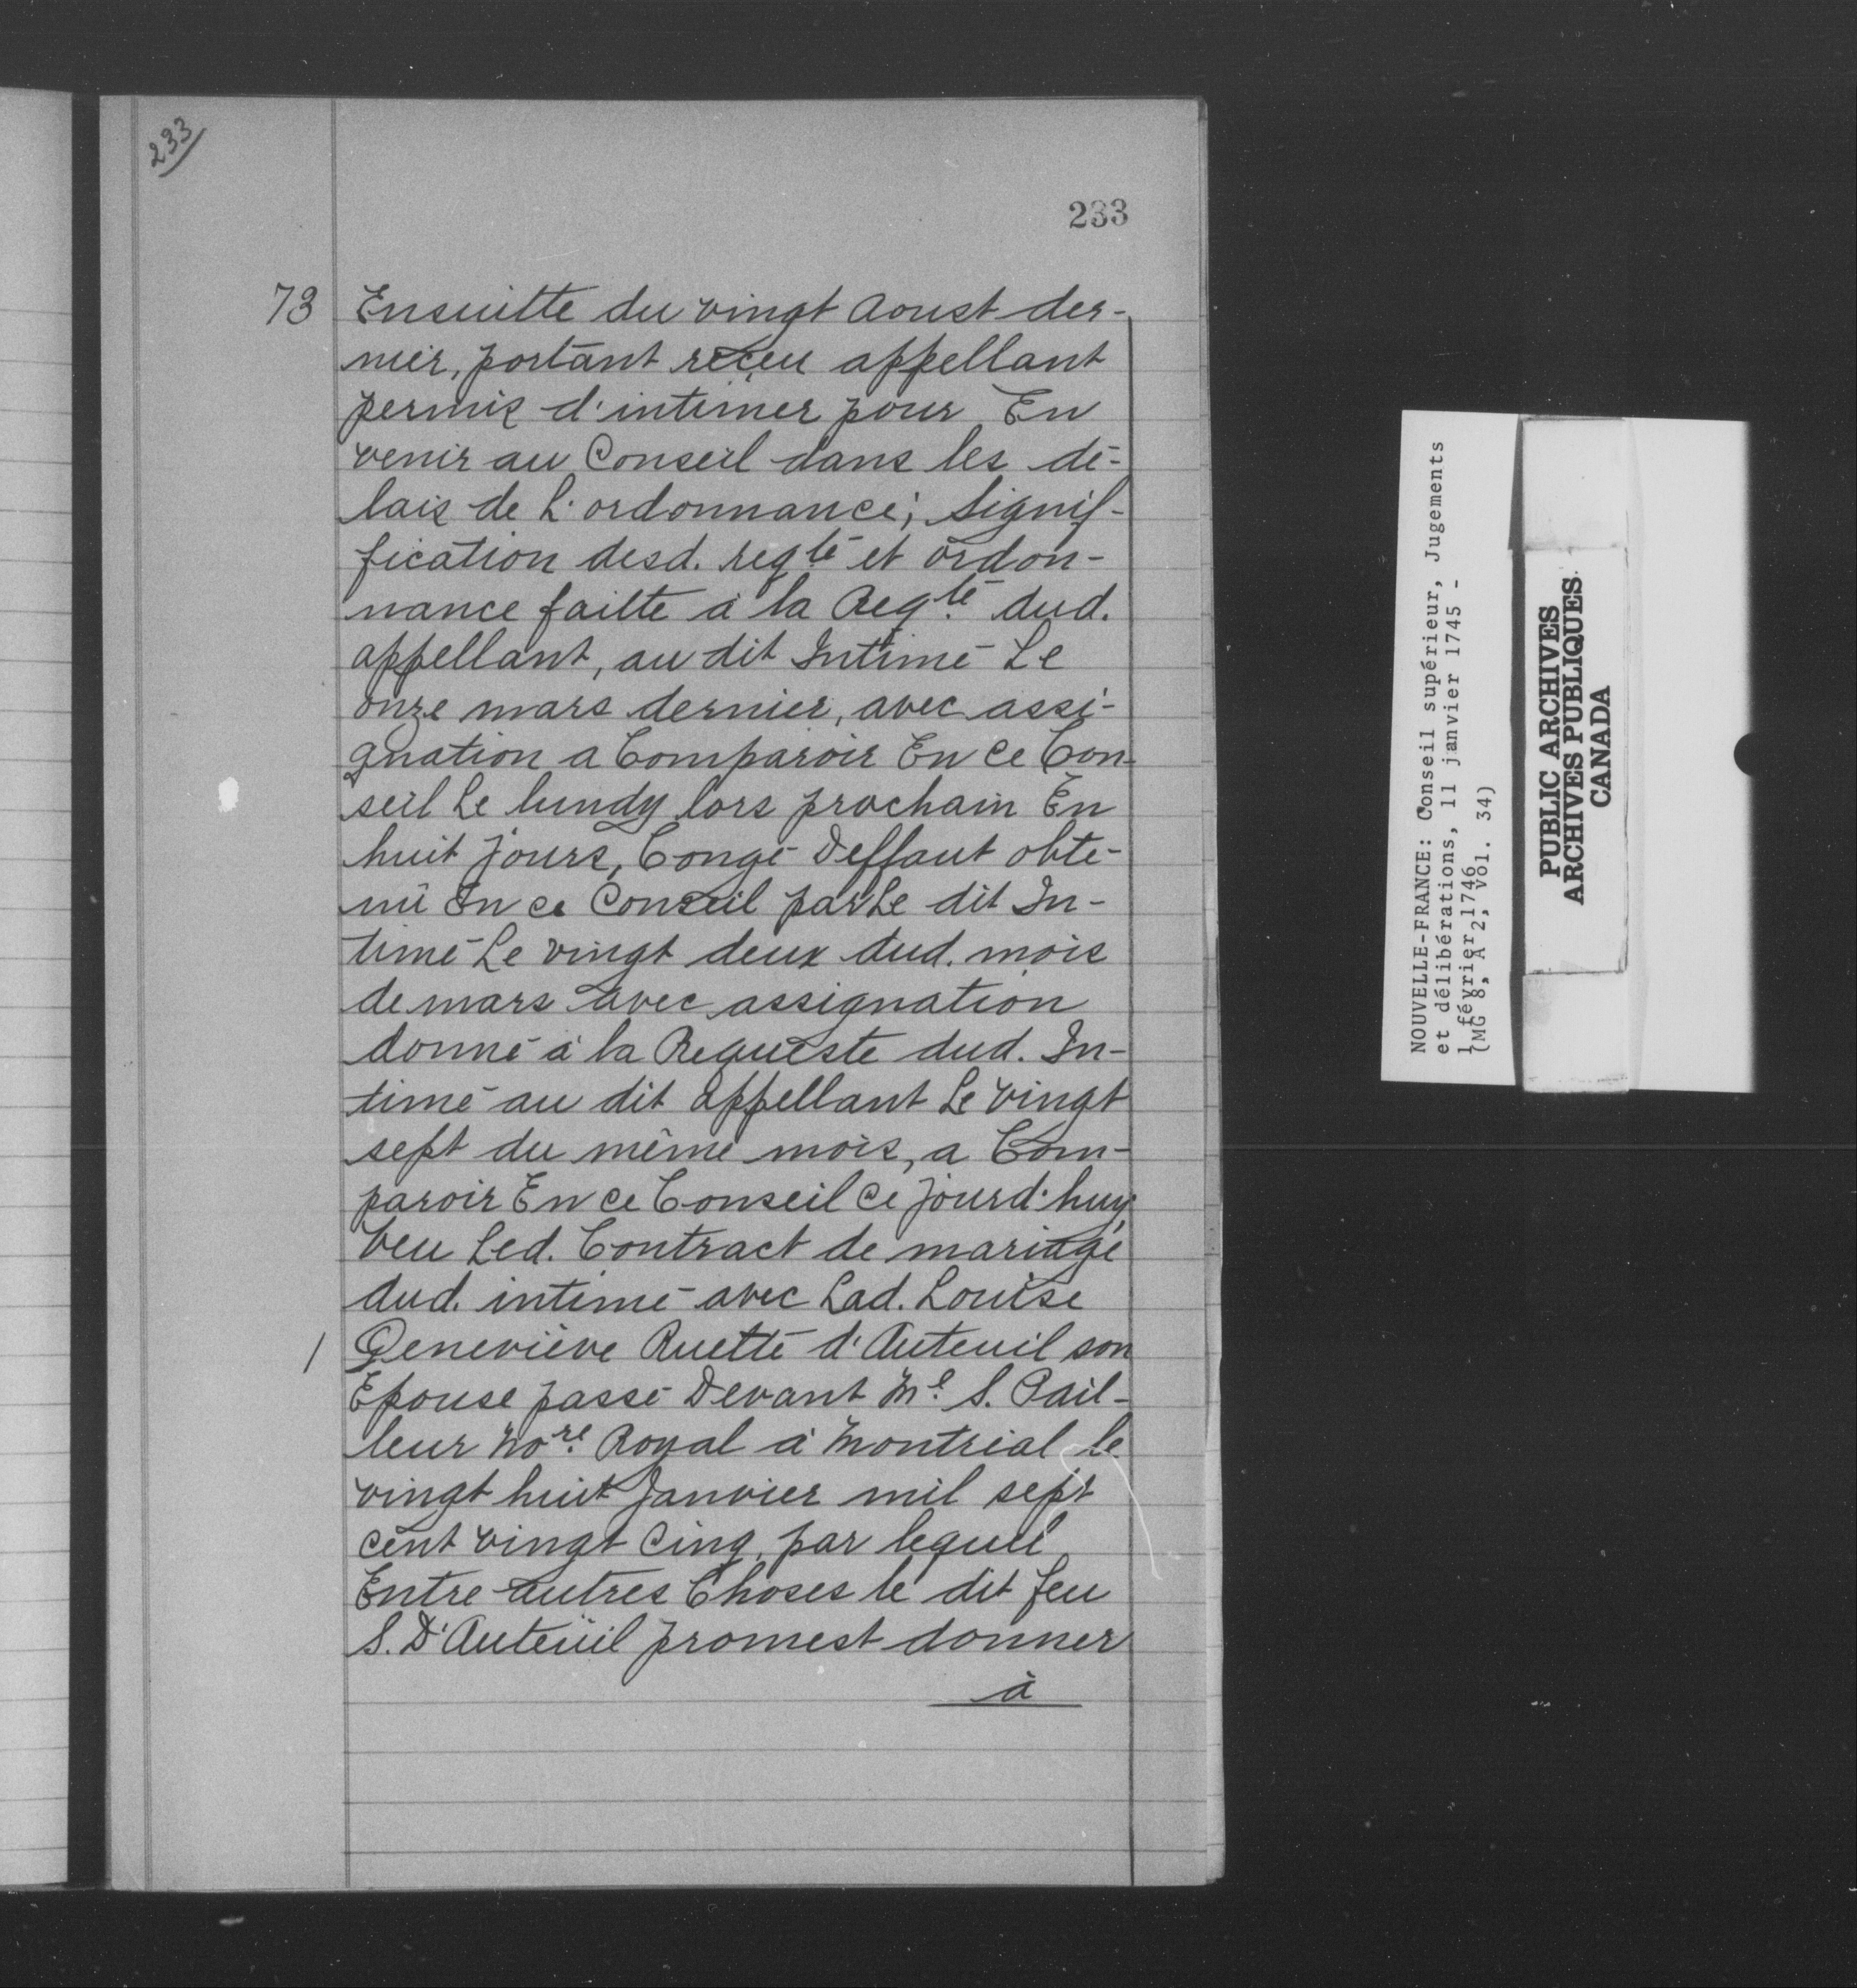 233
233
73 Ensuitte du vingt Aoust der-
nier, portant reçeu appellant
permis d'intimer pour En
venir au Conseil dans les dé-
lais de L'ordonnance; Signif-
fication desd. reqte et ordon-
nance faitte à la Reqte dud.
appellant, au dit Intimé Le
onze mars dernier, avec assi-
gnation a Comparoir En ce Con-
seil Le lundy lors prochain En
huit jours, Congé Deffaut obte-
nû En ce Conseil par Le dit In-
timé Le vingt deux dud. mois
de mars avec assignation
donné à la Requeste dud. In-
timé au dit appellant Le vingt
sept du même mois, a Com-
paroir En ce Conseil ce jourd'huy,
Veu Led. Contract de mariage
dud. intimé avec Lad. Louise
/ Geneviève Ruette d'Auteuil son
Epouse passé Devant Me. S. Pail-
leur Nore. Royal à Montréal le
vingt huit Janvier mil sept
cent vingt Cinq, par lequel
Entre autres Choses le dit feu
S. D'Auteüil promest donner
à
NOUVELLE-FRANCE: Conseil supérieur, Jugements
et délibérations, 11 janvier 1745 -
1 février 1746
(MG 8, A 2, vol. 34)
PUBLIC ARCHIVES
ARCHIVES PUBLIQUES
CANADA